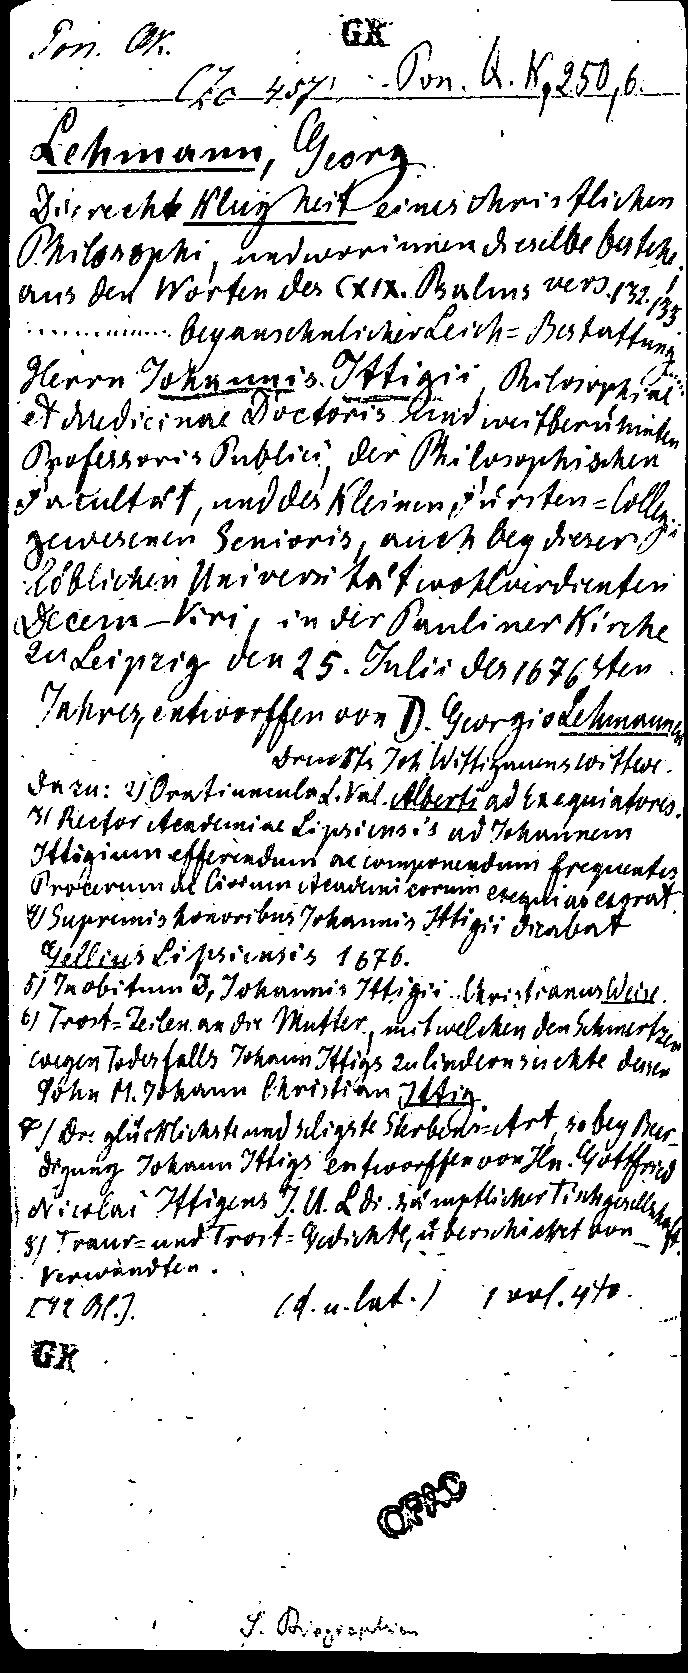 Pon. QK. GK
Zc 457 Pon. Q. K, 250, 6.
Lehmann, Georg
Die rechte Klugheit eines christlichen
Philosophi, und worinnen dieselbe bestehe,
aus den Worten des CXIX. Psalms vers. 132. 133
............ bey ansehnlicher Leich=Bestattung
Herrn Johannis Ittigii, Philosophiae
et Medicinae Doctoris und weitberühmten
Professoris Publici, der Philosophischen
Facultät, und des Kleinen Fürsten=Collegii
gewesenen Senioris, auch bey dieser
löblichen Universität wohlverdienten
Decem-Viri, in der Pauliner Kirche
zu Leipzig den 25. Julii des 1676sten
Jahres, entworffen von D. Georgio Lehmannen
druckts Joh Wittigauens Wittwe.
Dazu: 2) Oratiuncula L. Val. Alberti ad Exequiatores.
3) Rector Academiae Lipsiensis ad Johannem
Ittigium efferendum ac componendum frequentes
Procerum ac Civium Academicorum exequias exorat.
4) Supremis honoribus Johannis Ittigii dicabat
Gellius Lipsiensis 1676.
5) In obitum D. Johannis Ittigii.. Christianus Weise.
6) Trost=Zeilen an die Mutter, mit welchen den Schmertzen
wegen Todesfalls Johann Ittigs zu lindern suchte dessen
Sohn M. Johann Christian Ittig.
7) Die glücklichste und seligste Sterbens=Art, so bey Beer-
digung Johann Ittigs entworffen von Hn. Gottfried
Nicolai Ittigens J. U. L di. sämptlicher Tischgesellschaft.
8) Traur= und Trost=Gedichte, überschicket von
Verwandten.
[42 Bl.]. (d. u. lat.) 1 vol. 4to.
GK
OPAC
S. Biographien